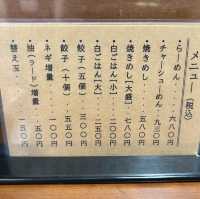 メニュー(税込)
・らーめん・・六八〇
・チャーシューめん・九三〇
・焼きめし・・・五五〇
・焼きめし[大盛]・七八〇
・白ごはん[小]・二〇〇
・白ごはん[大]・二五〇
・餃子(五個)・三〇〇
・餃子(十個)・五五〇
・ネギ増量・・・一〇〇
・油(ラード)増量・五〇
・替え玉・・・一五〇